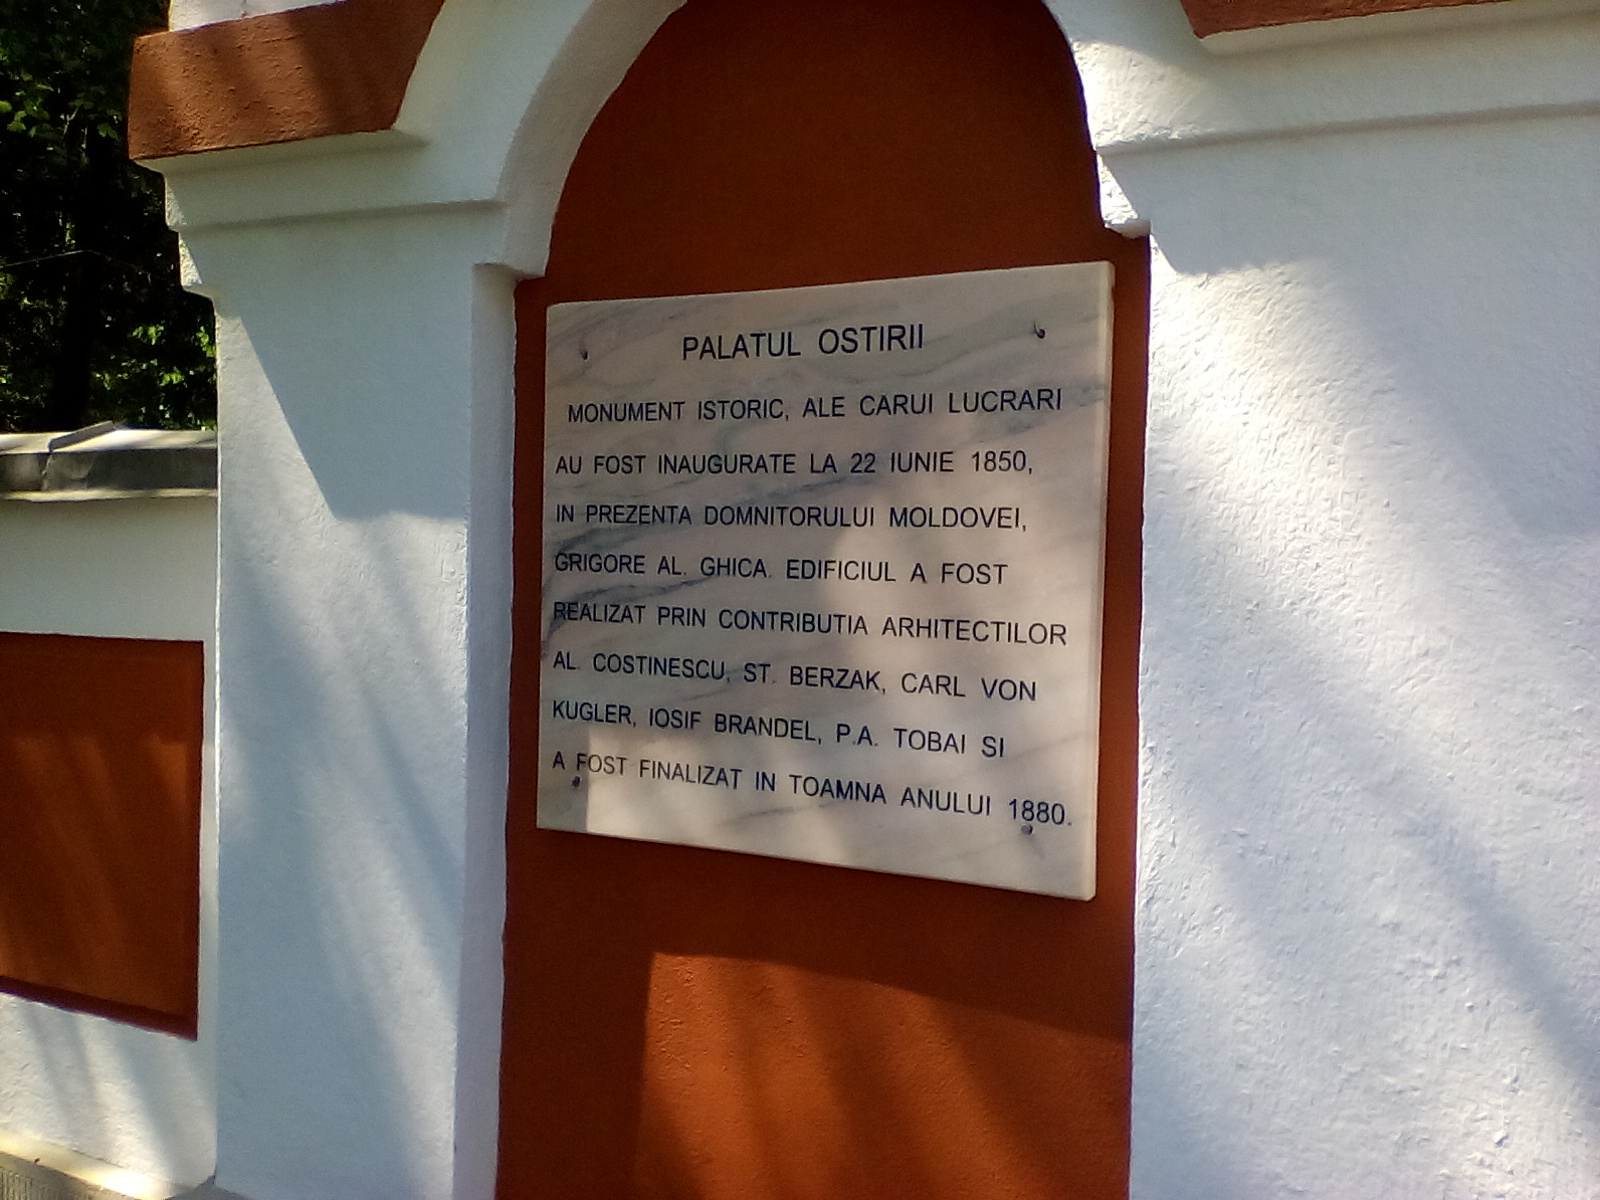 PALATUL OSTIRII
MONUMENT ISTORIC, ALE CARUI LUCRARI
AU FOST INAUGURATE LA 22 IUNIE 1850,
IN PREZENTA DOMNITORULUI MOLDOVEI,
GRIGORE AL. GHICA. EDIFICIUL A FOST
REALIZAT PRIN CONTRIBUTIA ARHITECTILOR
AL. COSTINESCU, ST. BERZAK, CARL VON
KUGLER, IOSIF BRANDEL, P.A. TOBAI SI
A FOST FINALIZAT IN TOAMNA ANULUI 1880.